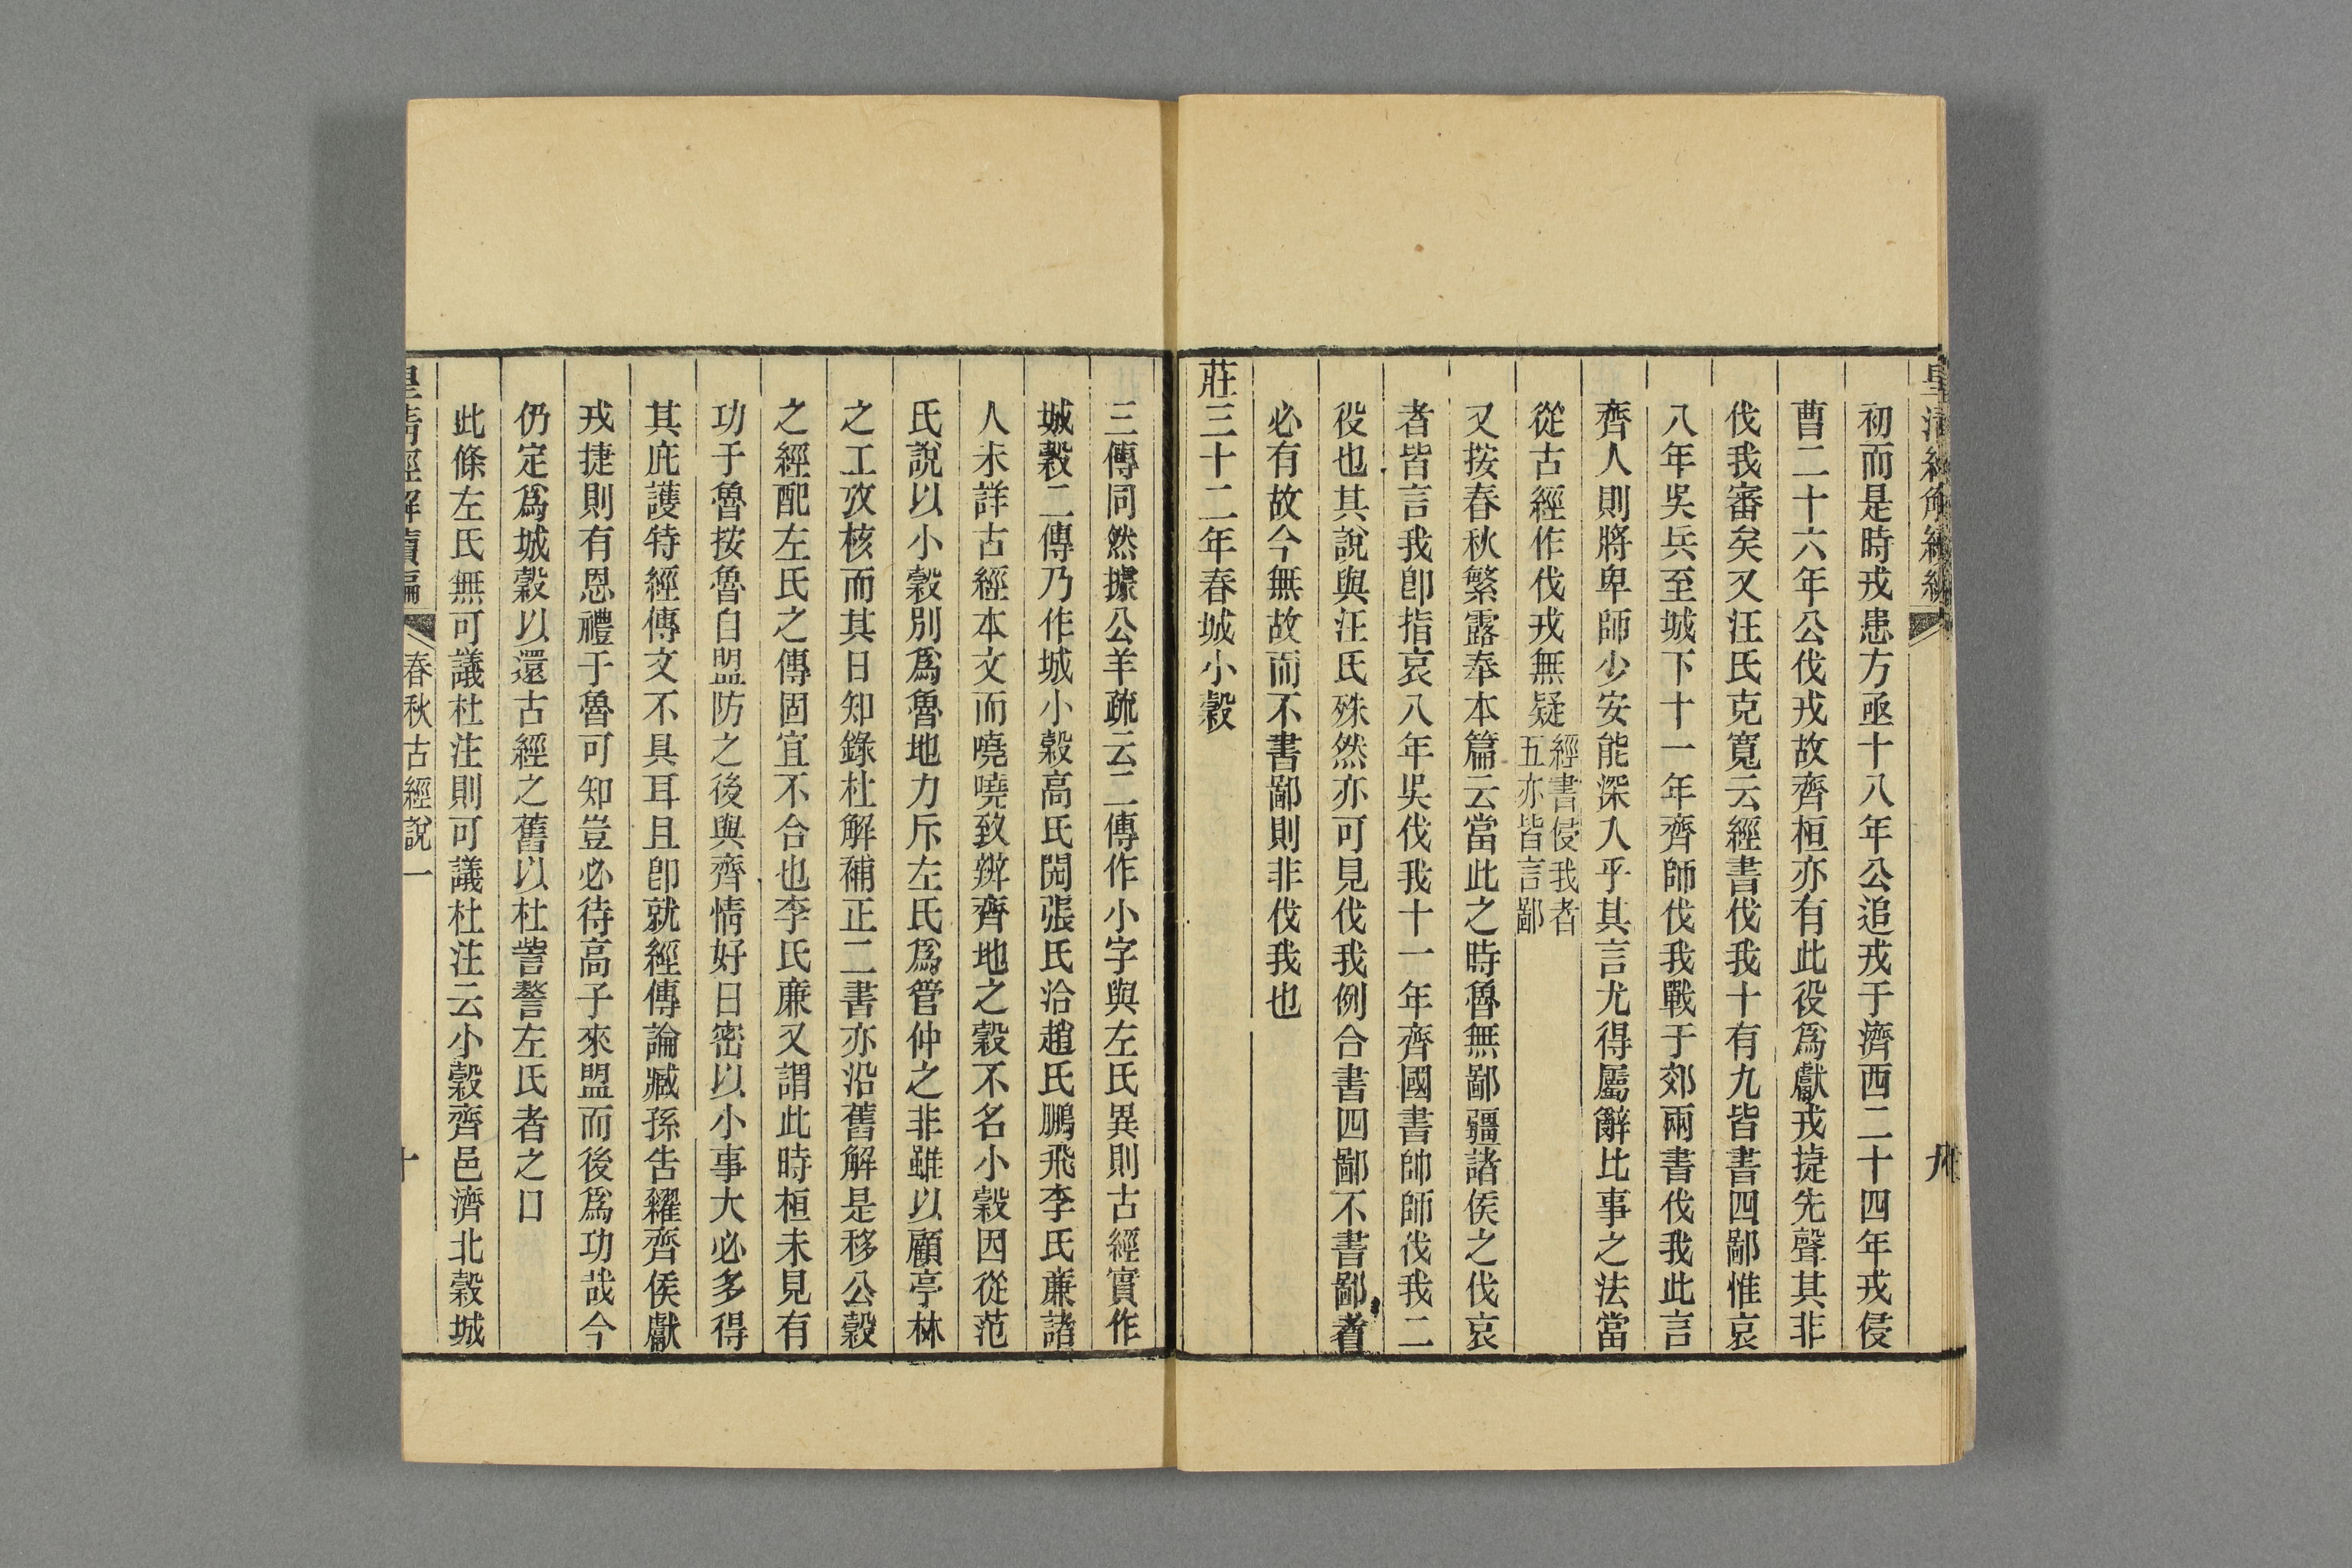 初而是時戎患方亟十八年公追戎于濟西二十四年戎侵
曹二十六年公伐戎故齊桓亦有此役爲獻戎捷先聲其非
伐我審矣又汪氏克寬云經書伐我十有九皆書四鄙惟哀
八年吳兵至城下十一年齊師伐我戰于郊兩書伐我此言
齊人則將卑師少安能深入乎其言尤得屬辭比事之法當
從古經作伐戎無疑
經書侵我者
五亦皆言鄙
又按春秋繁露奉本篇云當此之時魯無鄙疆諸侯之伐哀
者皆言我卽指哀八年吳伐我十一年齊國書帥師伐我二
役也其說與汪氏殊然亦可見伐我例合書四鄙不書鄙者
必有故今無故而不書鄙則非伐我也
莊三十二年春城小穀
三傳同然據公羊疏云二傳作小字與左氏異則古經實作
城穀二傳乃作城小穀高氏閌張氏洽趙氏鵬飛李氏廉諸
人未詳古經本文而嘵嘵致辨齊地之穀不名小穀因從范
氏說以小穀別爲魯地力斥左氏爲管仲之非雖以顧亭林
之工攷核而其日知錄杜解補正二書亦沿舊解是移公穀
之經配左氏之傳固宜不合也李氏廉又謂此時桓未見有
功于魯按魯自盟防之後與齊情好日密以小事大必多得
其庇護特經傳文不具耳且卽就經傳論臧孫告糴齊侯獻
戎捷則有恩禮于魯可知豈必待高子來盟而後爲功哉今
仍定爲城穀以還古經之舊以杜訾謷左氏者之口
此條左氏無可議杜注則可議杜注云小穀齊邑濟北穀城
皇清經解續編
春秋古經說一
十